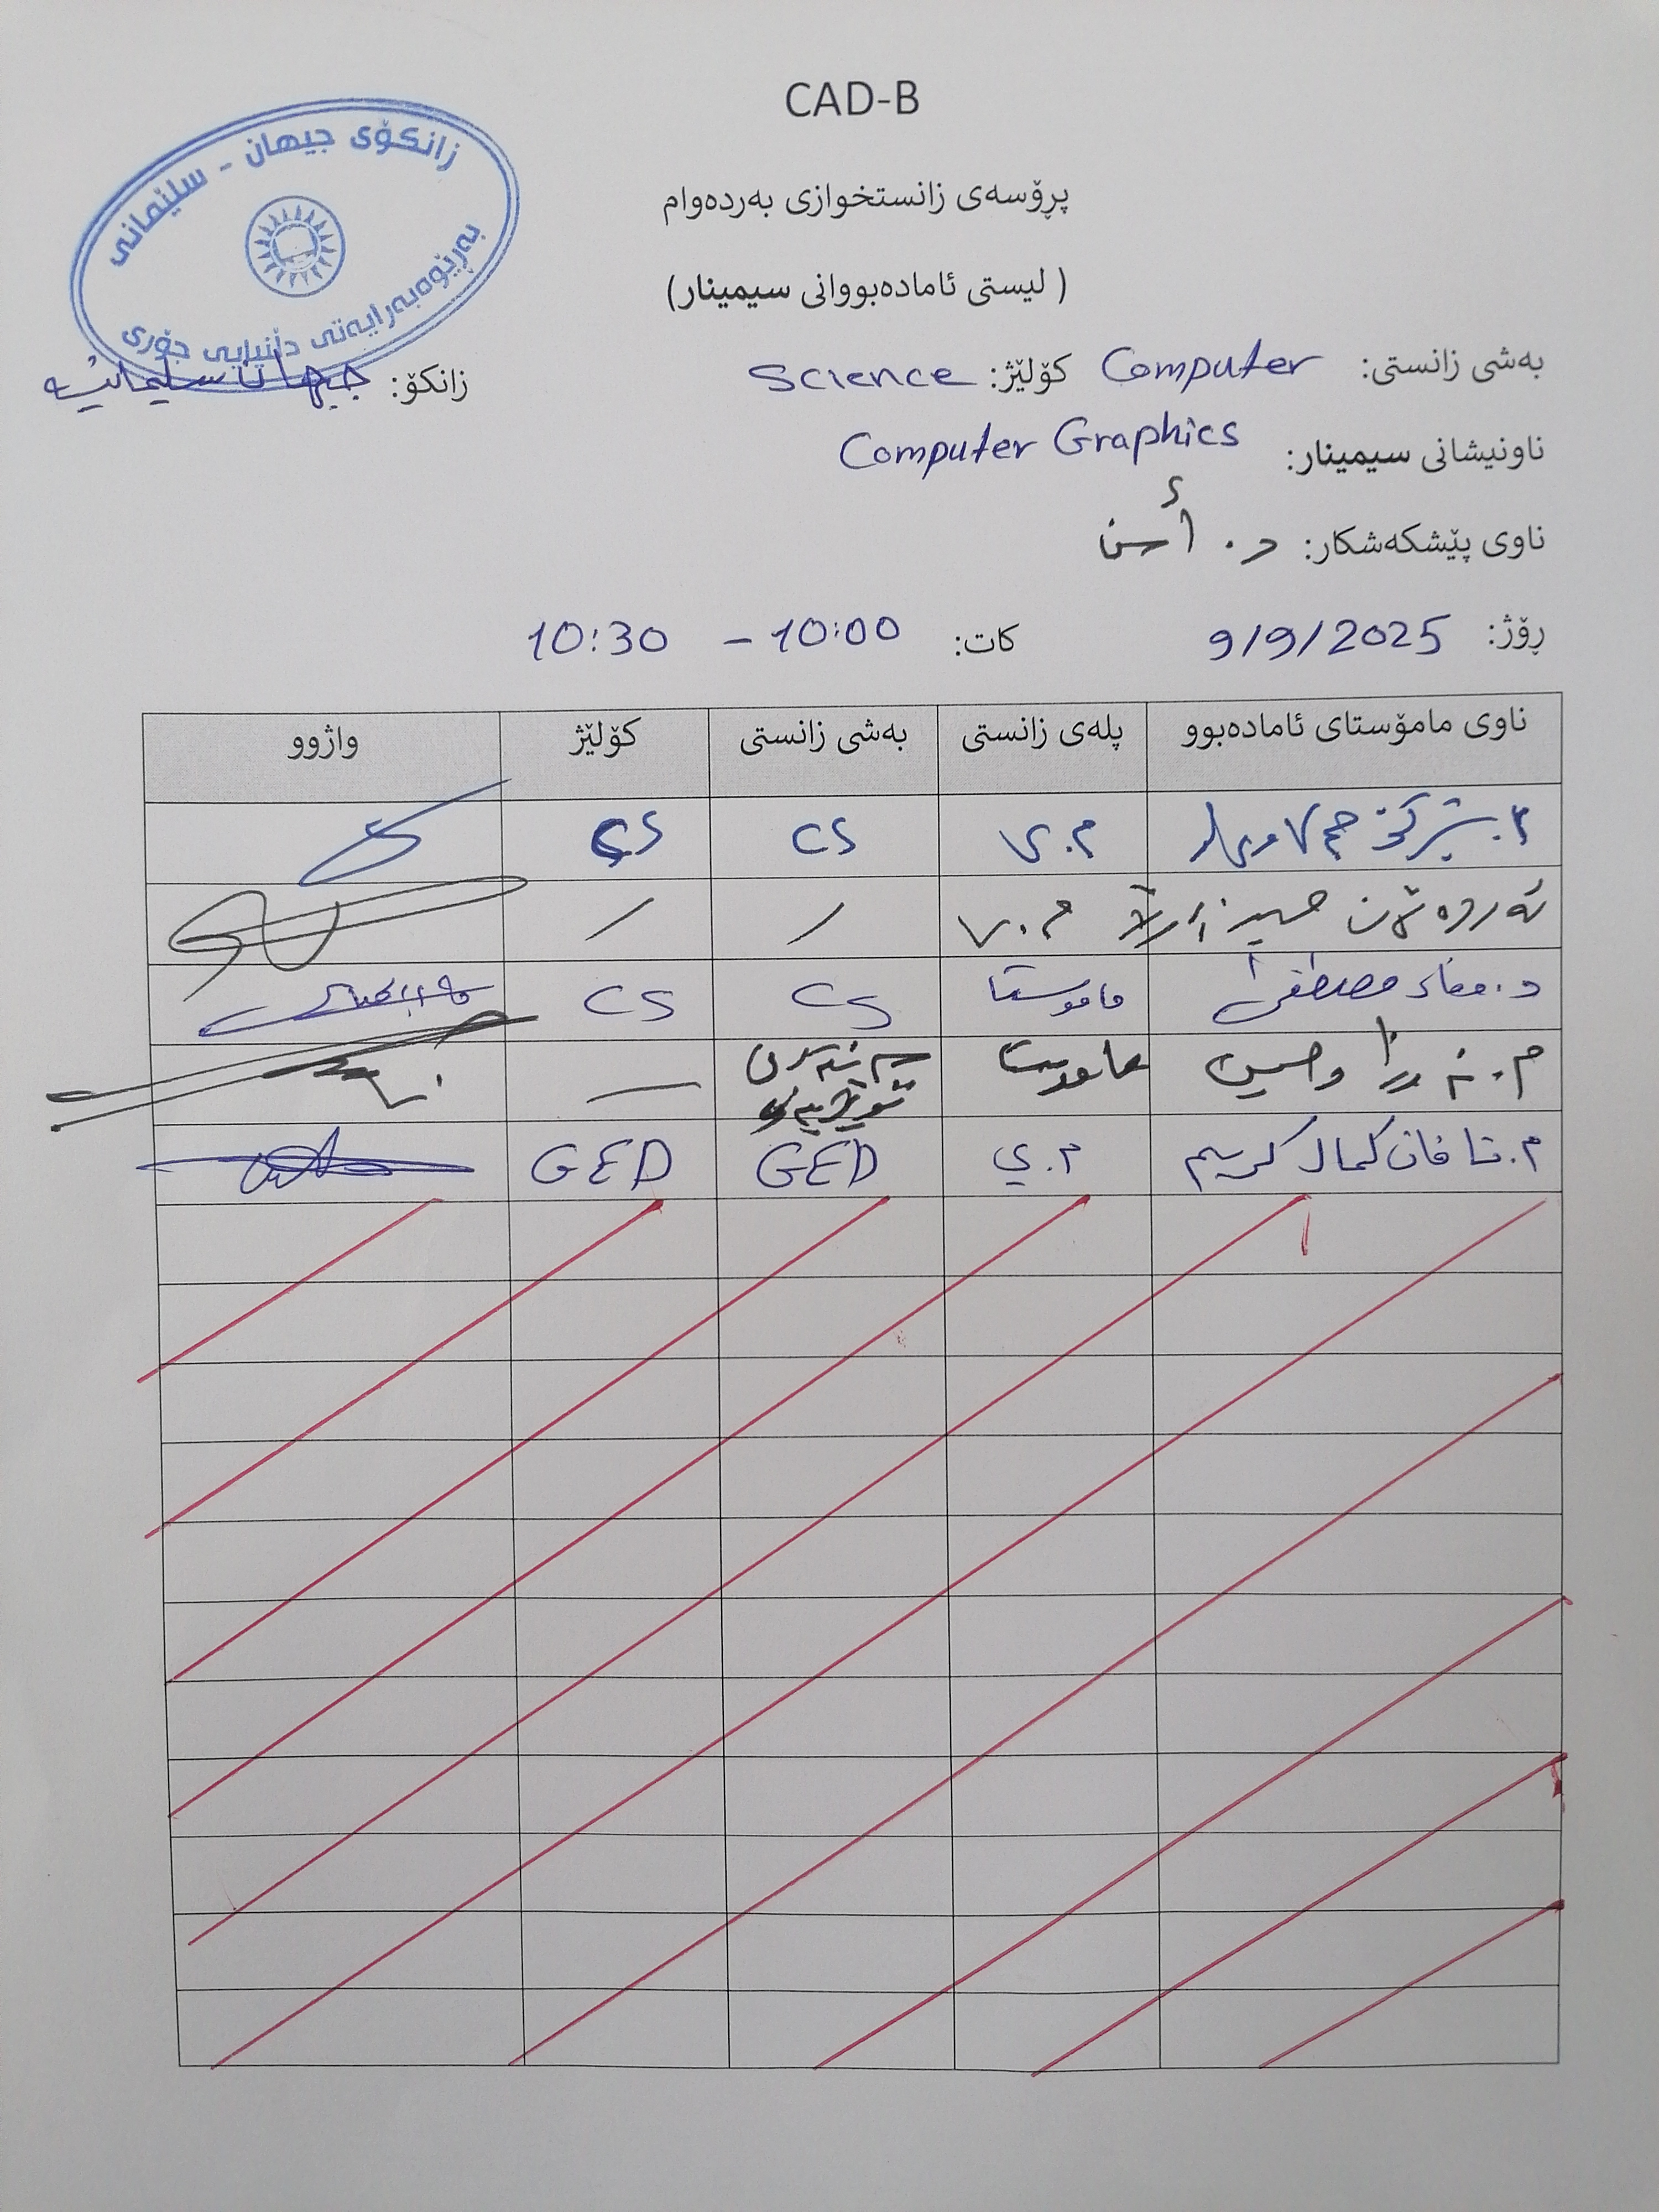 CAD-B
زانکۆی جیهان - سلێمانی
بەڕێوەبەرایەتی دڵنیایی جۆری
پڕۆسەی زانستخوازی بەردەوام
( لیستی ئامادەبووانی سیمینار)
بەشی زانستی: Computer کۆلێژ: Science زانکۆ: جیهان سلیمانی
ناونیشانی سیمینار: Computer Graphics
ناوی پێشکەشکار: د.
ڕۆژ: 9/9/2025 کات: 10:00 - 10:30
ناوی مامۆستای ئامادەبوو پلەی زانستی بەشی زانستی کۆلێژ واژوو
م.ی CS CS
حسین م.ی / /
د. مصطفی مامۆستا CS CS
م. حسین مامۆستا
م. کمال کریم م.ی GED GED